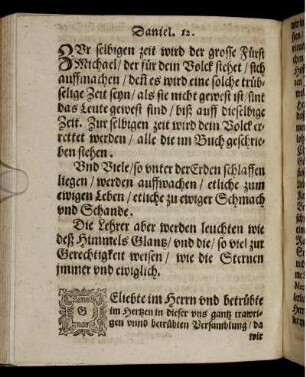 Daniel. 12.
ZVr selbigen zeit wird der grosse Fürst
Michael/ der für dein Volck stehet/ sich
auffmachen/ deñ es wird eine solche trüb-
selige Zeit seyn/ als sie nicht gewest ist/ sint
das Leute gewest sind/ biß auff dieselbige
Zeit. Zur selbigen zeit wird dein Volck er-
rettet werden/ alle die im Buch geschrie-
ben stehen.
Vnd Viele/ so vnter der Erden schlaffen
liegen/ werden auffwachen/ etliche zum
ewigen Leben/ etliche zu ewiger Schmach
vnd Schande.
Die Lehrer aber werden leuchten wie
deß Himmels Glantz/ vnd die/ so viel zur
Gerechtigkeit weisen/ wie die Sternen
jmmer vnd ewiglich.
GEliebte im Herrn vnd betrübte
im Hertzen in dieser vns gantz trawri-
gen vnnd betrübten Versamblung/ da
wir